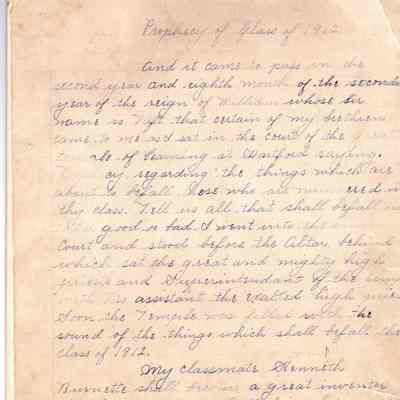 Prophecy of Class of 1912
And it came to pass in the
second year and eighth month of the second
year of the reign of William whose sur
name is Taft that certain of my brethren
came to me as I sat in the court of the
of learning at Hartford saying.
regarding the things which are
about to befall those who are numbered in
thy class. Tell us all that shall befall
good or bad. I went into the
Court and stood before the Altar, behind
which sat the great and mighty high
priest and Superintendant of the
with his assistant the exalted high priest
Soon the Temple was filled with the
sound of the things which shall befall the
class of 1912.
My classmate Kenneth
Burnette shall become a great inventor